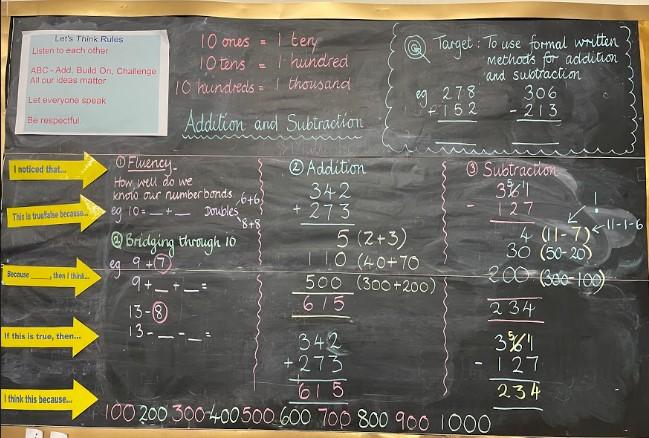 Let's Think Rules
Listen to each other
ABC - Add, Build On, Challenge
All our ideas matter
Let everyone speak
Be respectful
10 ones = 1 ten
10 tens = 1 hundred
10 hundreds = 1 thousand
Addition and Subtraction
Target: To use formal written
methods for addition
and subtraction
eg 278 306
+152 - 213
I noticed that...
This is true/false because...
Because ____, then I think...
If this is true, then...
I think this because...
① Fluency
How well do we
know our number bonds
eg 10 = _ + _ Doubles 6+6
8+8
② Bridging through 10
eg 9 + 7
9 + _ + _ =
13 - 8
13 - _ - _ =
② Addition
342
+ 273
5 (2+3)
110 (40+70
500 (300+200)
615
342
+ 273
1
615
③ Subtraction
3 5 6 1 1
- 127
4 (11-7) ← 11-1-6
30 (50-20)
200 (300-100)
234
3 5 6 1 1
- 127
234
100 200 300 400 500 600 700 800 900 1000